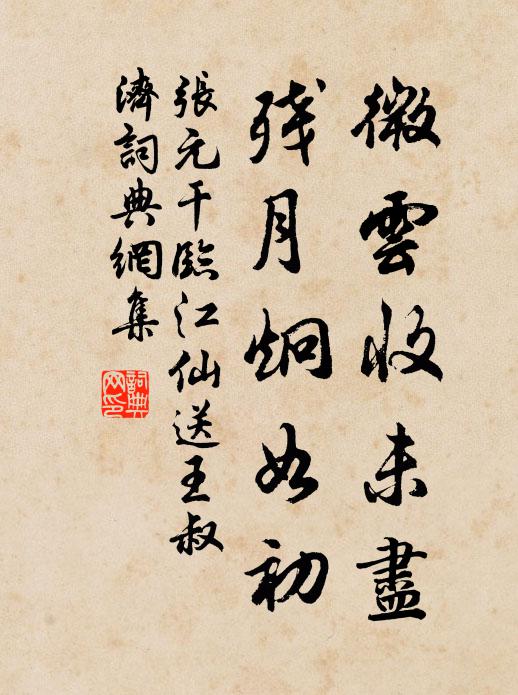 微雲收未盡
残月炯如初
張元干臨江仙送王叔
濟詞典網集
詞典
网印